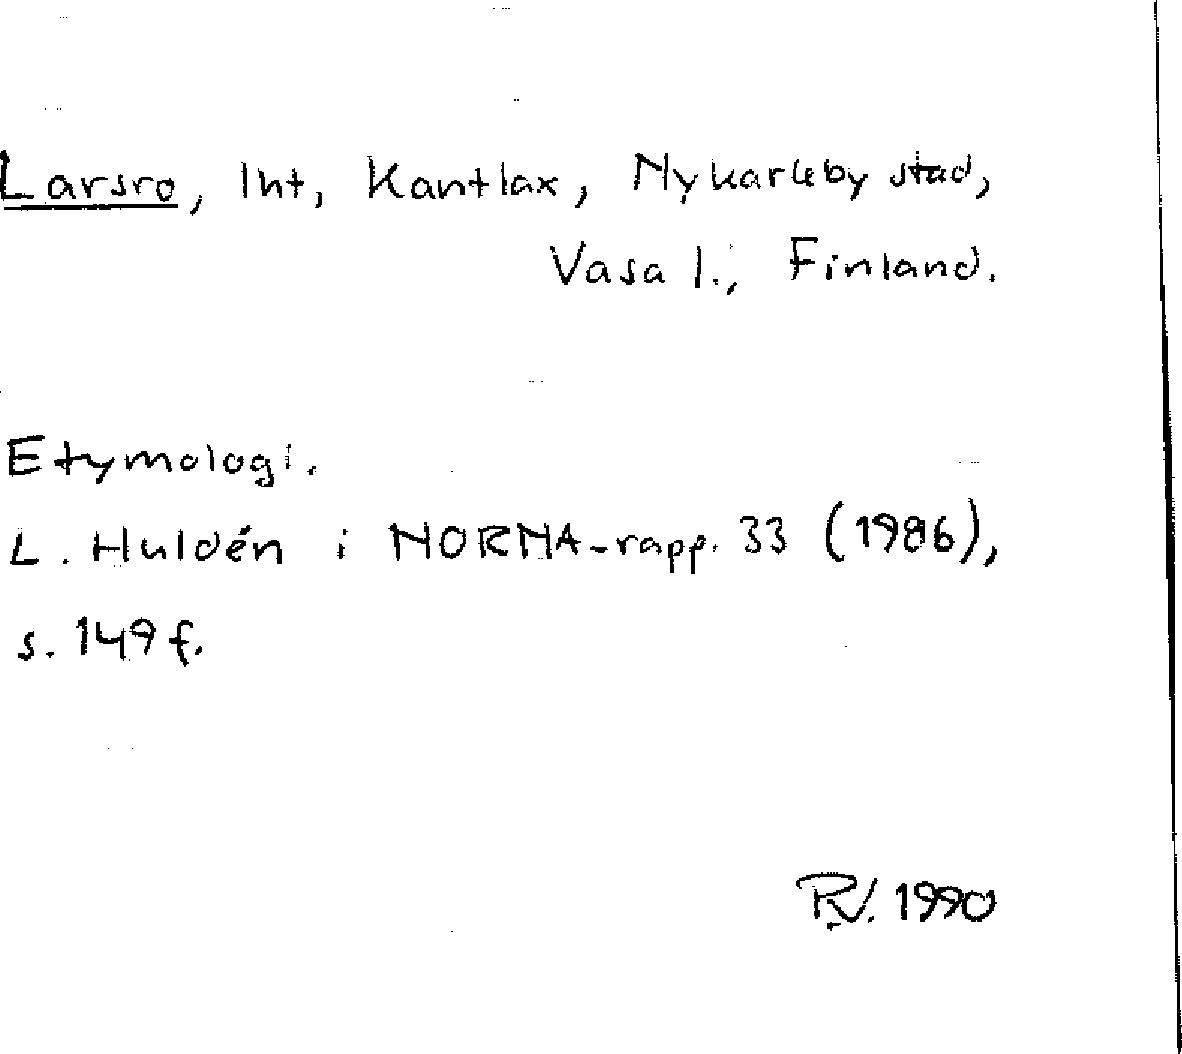 Larsro, Int, Kantlax, Nykarleby stad,
Vasa l., Finland.
Etymologi.
L. Huldén i NORNA-rapp. 33 (1986),
s. 149 f.
RV. 1990